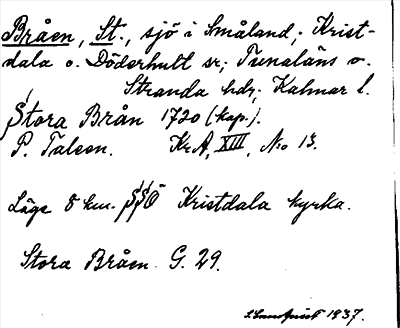 Bråen, St., sjö i Småland; Krist-
dala o. Döderhult sr; Tunaläns o.
Stranda hdr; Kalmar l.
Stora Brån 1720 (kap.).
P. Taleen. KrA, XIII, No 13.
Läge 8 km. SSÖ Kristdala kyrka.
Stora Bråen G. 29.
1937.